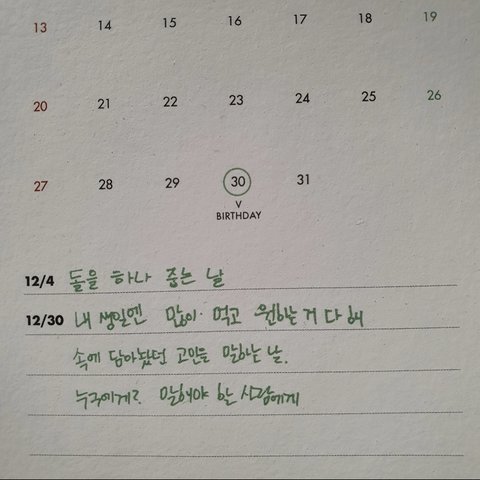 13 14 15 16 17 18 19
20 21 22 23 24 25 26
27 28 29 30 31
V
BIRTHDAY
12/4 돌을 하나 줍는 날
12/30 내 생일엔 많이 먹고 원하는 거 다 해
속에 담아놨던 고민을 말하는 날.
누구에게? 말해야 할 사람에게